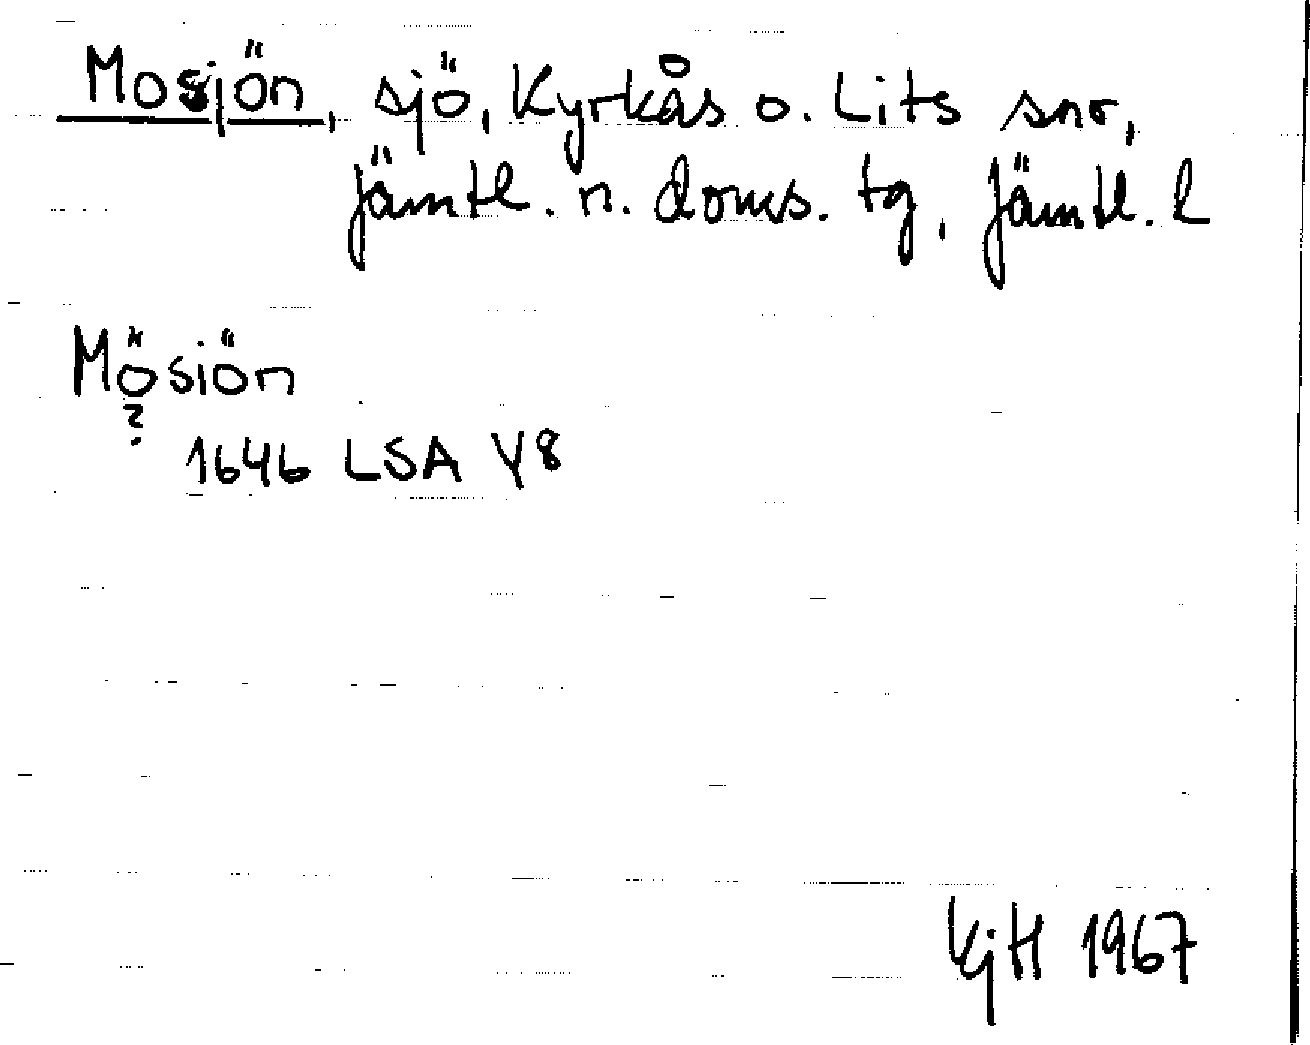 Mosjön, sjö, Kyrkås o. Lits snr,
Jämtl. n. doms. tg, Jämtl. l
Mösiön
?
1646 LSA Y8
KjH 1967